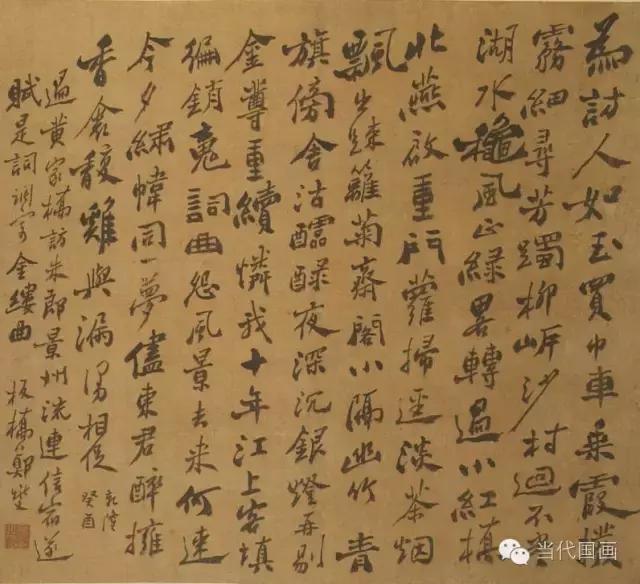 為訪人如玉買巾車乘霞撲
霧細尋芳躅柳岸沙村迴不
湖水穐風正綠畧轉過小紅橋
北燕啟重門蘿掃逕淡茶烟
飄出疎籬菊齋閣小隔幽竹青
旗傍舍沽醽醁夜深沉銀燈再剔
金尊重續憐我十年江上客填
徧銷魂詞曲怨風景去來何速
今夕繡幃同一夢儘東君醉擁
香衾馥雞與漏漫相促
乾隆
癸酉
過黃家橋訪朱郎景州流連信宿遂
賦是詞調寄金縷曲 板橋鄭燮
当代国画